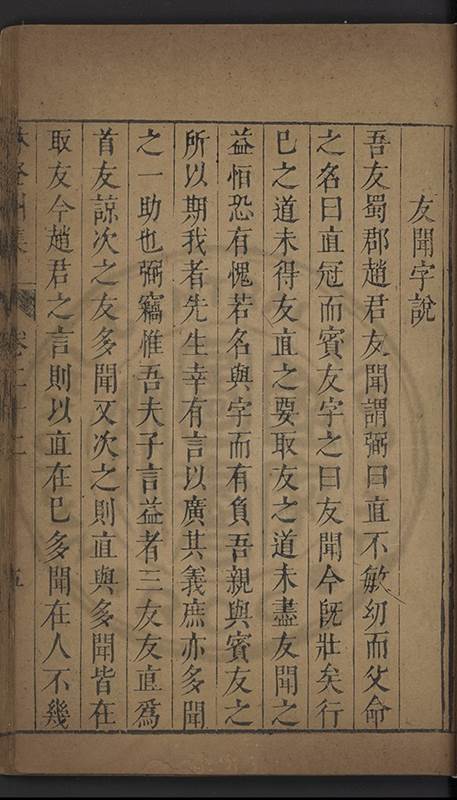 友聞字說
吾友蜀郡趙君友聞謂弼曰直不敏幼而父命
之名曰直冠而賓友字之曰友聞今旣壯矣行
巳之道未得友直之要取友之道未盡友聞之
益恒恐有愧若名與字而有負吾親與賓友之
所以期我者先生幸有言以廣其義庶亦多聞
之一助也弼竊惟吾夫子言益者三友友直爲
首友諒次之友多聞又次之則直與多聞皆在
取友今趙君之言則以直在巳多聞在人不幾
集 卷二十二 五